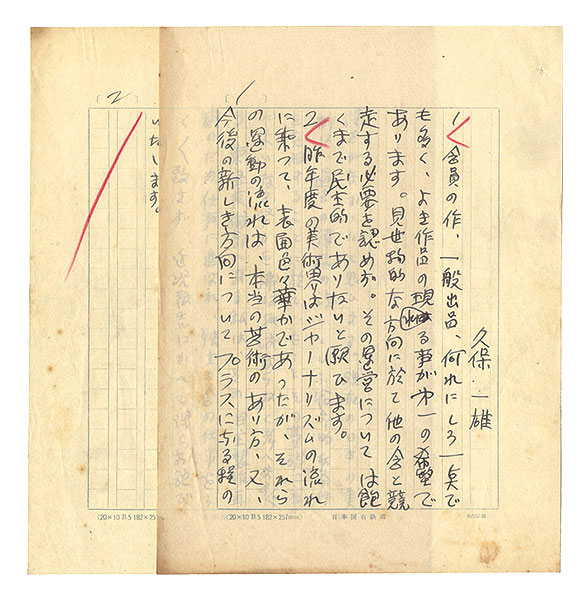 久保一雄
1 会員の作、一般出品、何れにしろ一点で
も多く、よき作品の現れる事が第一の希望で
あります。見世物的な方向に於て他の会と競
走する必要を認めぬ。その運営については飽
くまで民主的でありたいと願ひます。
2 昨年度の美術界はジャーナリズムの流れ
に乗つて、表面色々華かであったが、それら
の運動の流れは、本当の芸術のあり方、又、
今後の新しき方向についてプラスになる程の
1
(20×10 B.5 182×257mm)
日本国有鉄道
2
いたします。
(20×10 B.5 182×25